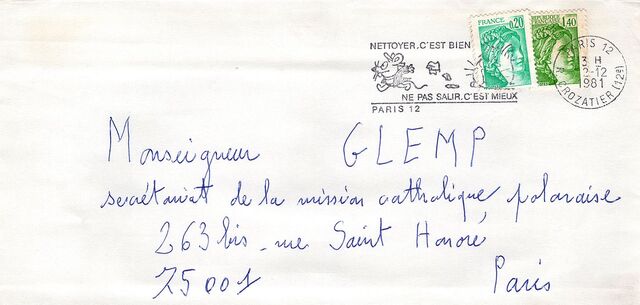 NETTOYER.C'EST BIEN
NE PAS SALIR.C'EST MIEUX
PARIS 12
FRANCE
0,20
1,40
PARIS 12
3 H
2-12
1981
CROZATIER (12e)
Monseigneur GLEMP
secrétariat de la mission catholique polonaise
263 bis - rue Saint Honoré
75001 Paris